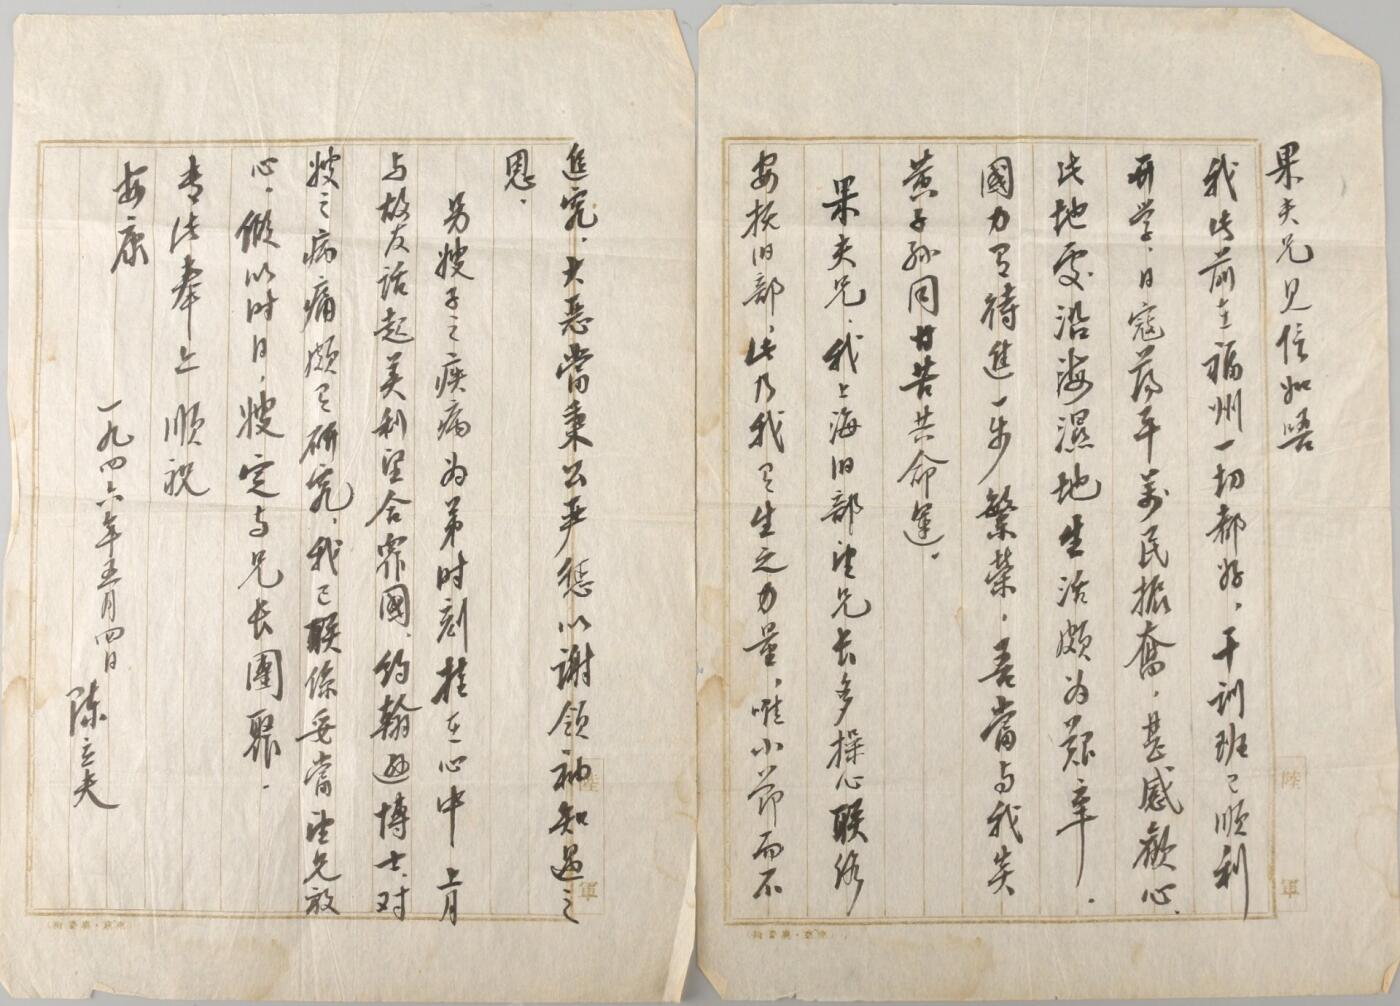 果夫兄见信如晤
我此前在福州一切都好，干训班已顺利
开学，日寇荡平万民振奋，甚感歡心，
此地处沿海濕地生活颇为艰辛。
國力有待進一步繁荣，吾當与我炎
黄子孙同甘苦共命運。
果夫兄，我上海旧部望兄长多操心联络
安抚旧部，此乃我有生之力量，唯小节而不
進究，大惡當秉公严惩以謝领袖知遇之
恩。
另嫂子之疾病为弟时刻挂在心中 上月
与故友话起美利坚合衆國，约翰逊博士，对
嫂之病痛颇有研究，我已联係妥當望兄放
心，假以时日，嫂定与兄长團聚。
书此奉上 顺祝
安康
一九四六年五月四日
陈立夫
陸 軍
陸 軍